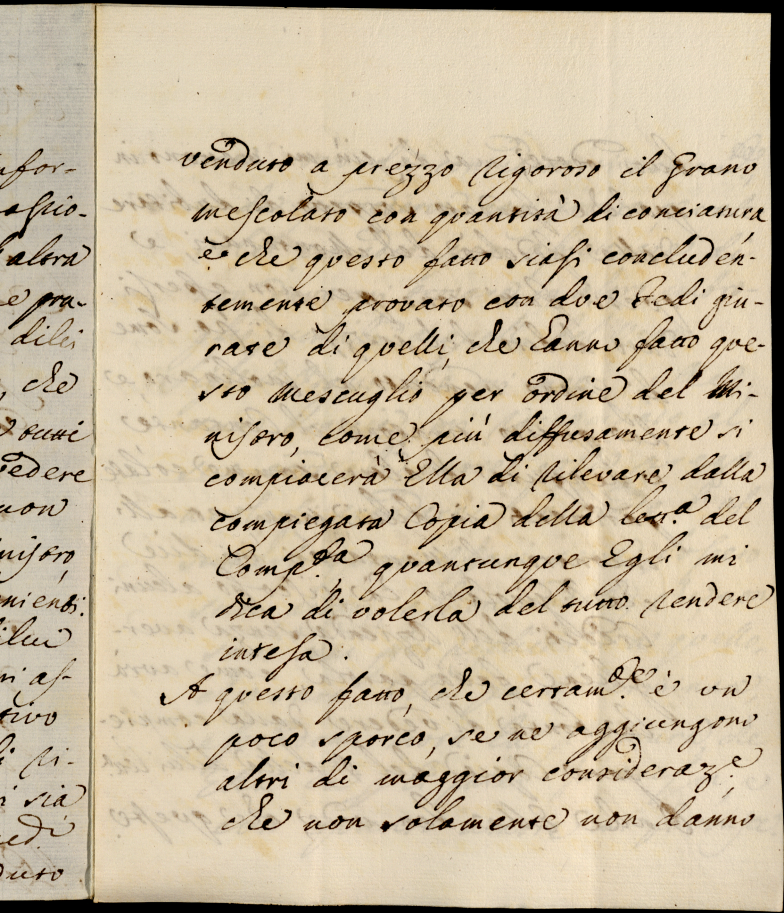 nfor-
assio-
altra
e pra-
di lei
, che
tutti
vedere
non
nistro,
nienti.
di lui
ni as-
tivo
di Ri-
i sia
ed.
duto
venduto a prezzo rigoroso il Grano
mescolato con quantità di conciatura,
e che questo fatto siasi concluden-
temente provato con due Fedi giu-
rate di quelli, che hanno fatto que-
sto mescuglio per ordine del Mi-
nistro, come più diffusamente si
compiacerà Ella di rilevare dalla
compiegata Copia della lett.a del
Comp.sta quantunque Egli mi
dica di volerla del tutto rendere
intesa.
A questo fatto, che certam.te è un
poco sporco, se ne aggiungono
altri di maggior consideraz.e,
che non solamente non danno